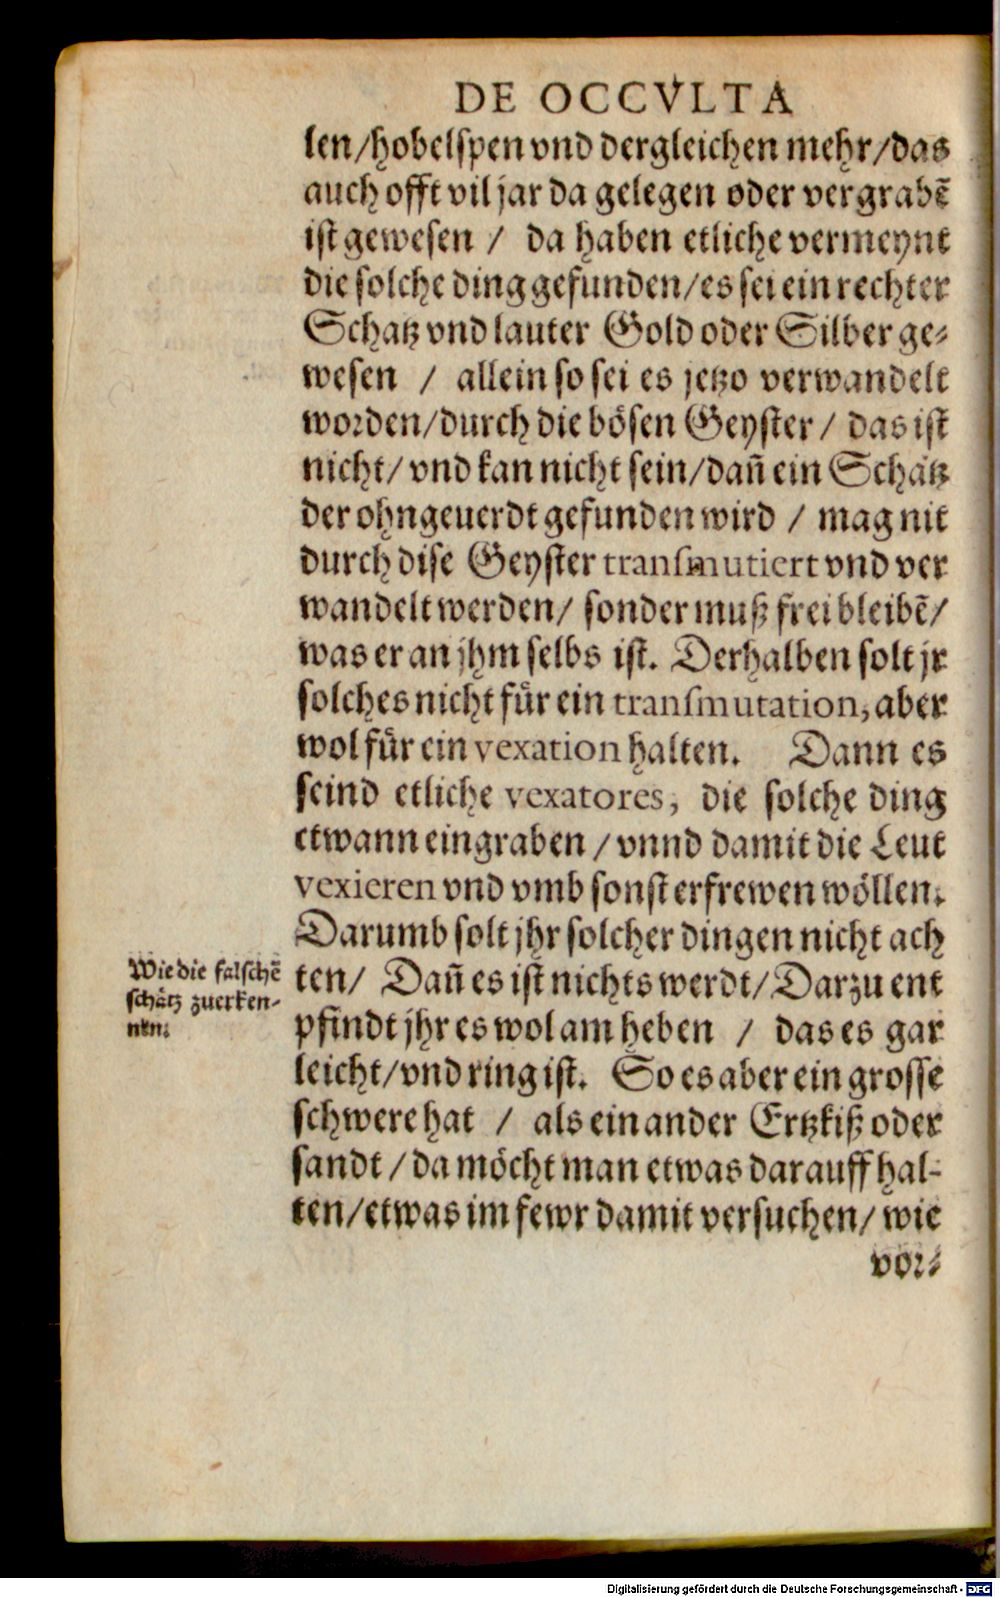 DE OCCVLTA
len/hobelspen vnd dergleichen mehr/das
auch offt vil jar da gelegen oder vergrabē
ist gewesen / da haben etliche vermeynt
die solche ding gefunden/es sei ein rechter
Schatz vnd lauter Gold oder Silber ge-
wesen / allein so sei es jetzo verwandelt
worden/durch die bösen Geyster / das ist
nicht/vnd kan nicht sein/dañ ein Schatz
der ohngeuerdt gefunden wird / mag nit
durch dise Geyster transmutiert vnd ver
wandelt werden/ sonder muß frei bleibē/
was er an jhm selbs ist. Derhalben solt jr
solches nicht für ein transmutation, aber
wol für ein vexation halten. Dann es
seind etliche vexatores, die solche ding
etwann eingraben / vnnd damit die Leut
vexieren vnd vmb sonst erfrewen wöllen.
Darumb solt jhr solcher dingen nicht ach
Wie die falschē
schätz zuerken-
nen.
ten/ Dañ es ist nichts werdt/Darzu ent
pfindt jhr es wol am heben / das es gar
leicht/vnd ring ist. So es aber ein grosse
schwere hat / als ein ander Ertzkiß oder
sandt / da möcht man etwas darauff hal-
ten/etwas im fewr damit versuchen/ wie
vor-
Digitalisierung gefördert durch die Deutsche Forschungsgemeinschaft - DFG